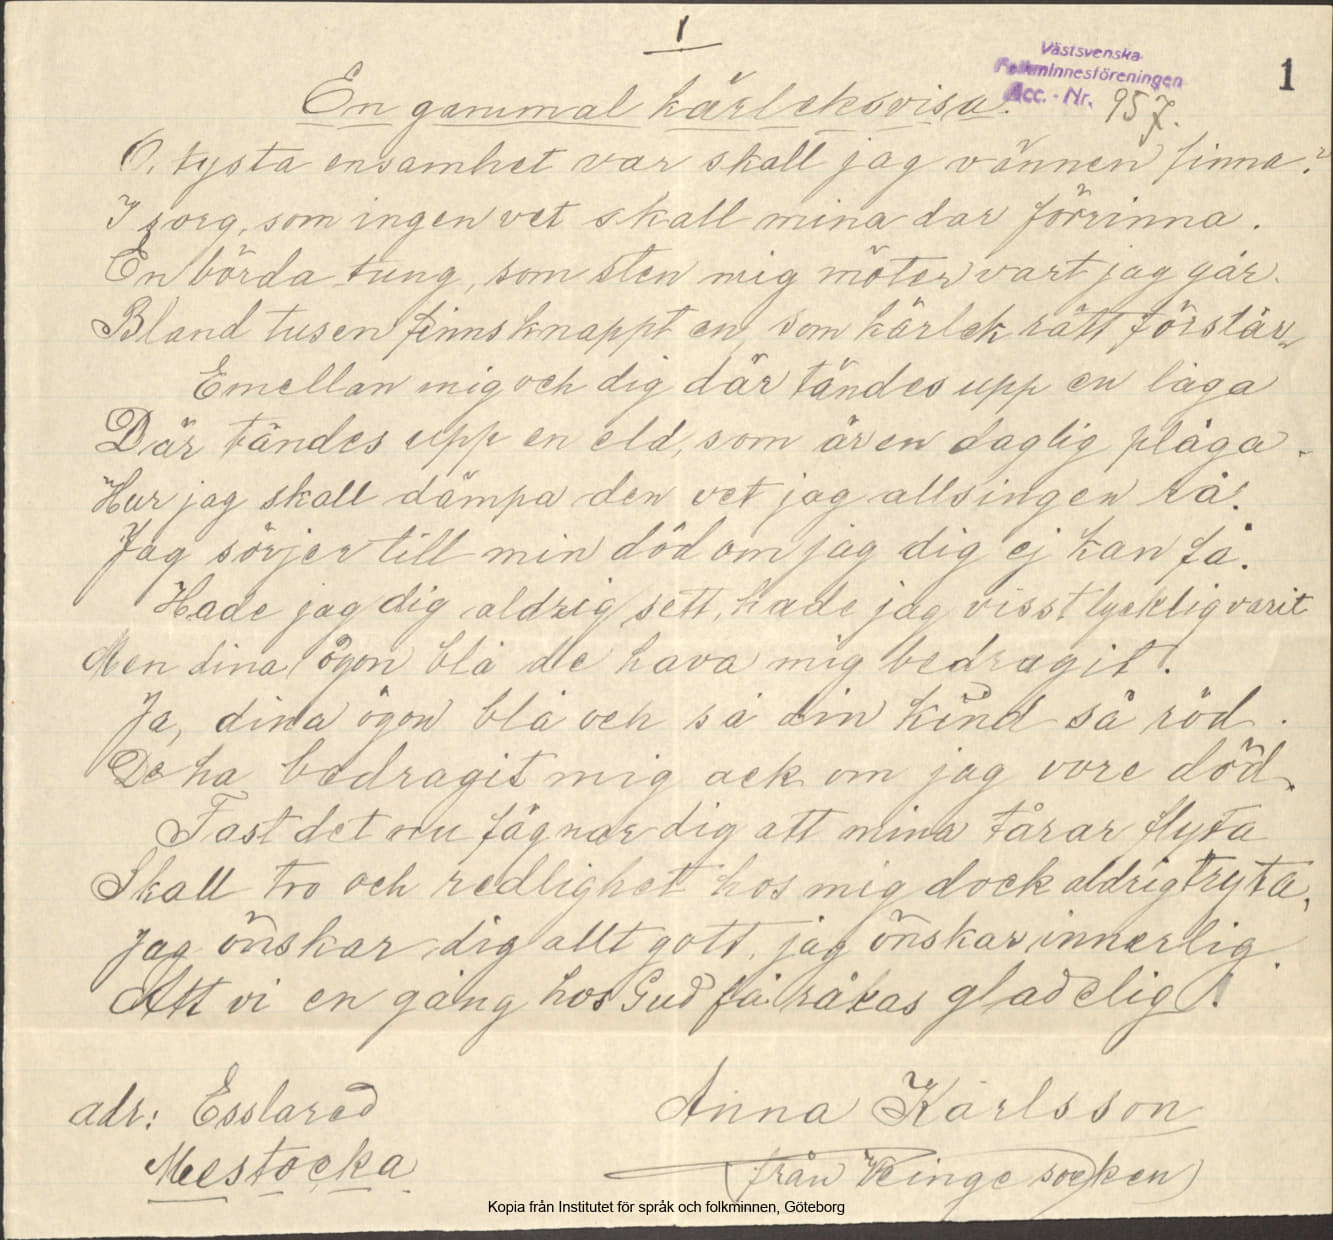 1
Västsvenska
Folkminnesföreningen
Acc. - Nr. 957.
1
En gammal kärleksvisa.
O, tysta ensamhet var skall jag vännen finna?
I sorg, som ingen vet skall mina dar förrinna.
En börda tung, som sten mig möter vart jag går.
Bland tusen finns knappt en, som kärlek rätt förstår.
Emellan mig och dig där tändes upp en låga
Där tändes upp en eld, som är en daglig plåga.
Hur jag skall dämpa den vet jag alls ingen rå!
Jag sörjer till min död om jag dig ej kan få.
Hade jag dig aldrig sett, hade jag visst lycklig varit
Men dina ögon blå de hava mig bedragit!
Ja, dina ögon blå och så din kind så röd.
De ha bedragit mig ack om jag vore död.
Fast det nu fägnar dig att mina tårar flyta
Skall tro och redlighet hos mig dock aldrig tryta,
Jag önskar dig allt gott, jag önskar innerlig.
Att vi en gång hos Gud få råkas gladelig!
adr: Esslared
Mestocka
Anna Karlsson
(från Kinge socken)
Kopia från Institutet för språk och folkminnen, Göteborg